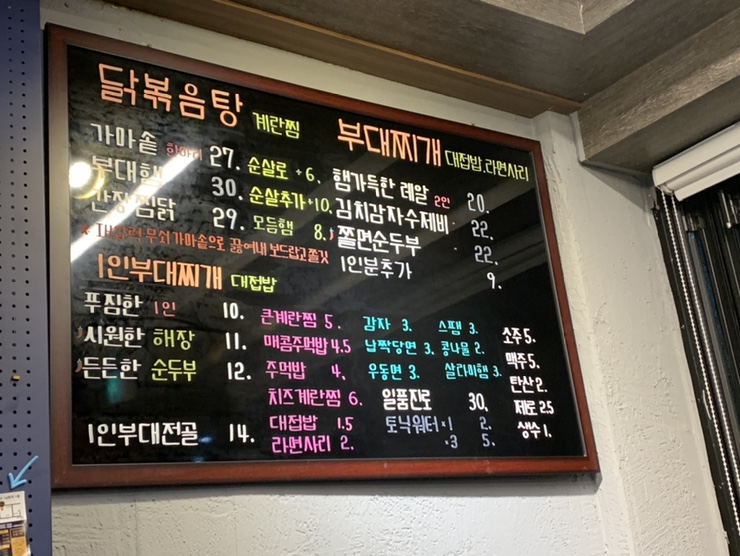 닭볶음탕 계란찜
가마솥 한마리 27. 순살로 +6.
부대햄 30. 순살추가 +10.
간장찜닭 29. 모듬햄 8.
무쇠가마솥으로 끓여내 보드랍고쫄깃
부대찌개 대접밥, 라면사리
햄가득한 레알 2인 20.
김치감자수제비 22.
쫄면순두부 22.
1인분추가 9.
1인부대찌개 대접밥
푸짐한 1인 10.
시원한 해장 11.
든든한 순두부 12.
1인부대전골 14.
큰계란찜 5.
매콤주먹밥 4.5
주먹밥 4.
치즈계란찜 6.
대접밥 1.5
라면사리 2.
감자 3.
납짝당면 3.
우동면 3.
스팸 3.
콩나물 2.
살라미햄 3.
일품진로 30.
토닉워터 ×1 2.
×3 5.
소주 5.
맥주 5.
탄산 2.
제로 2.5
생수 1.